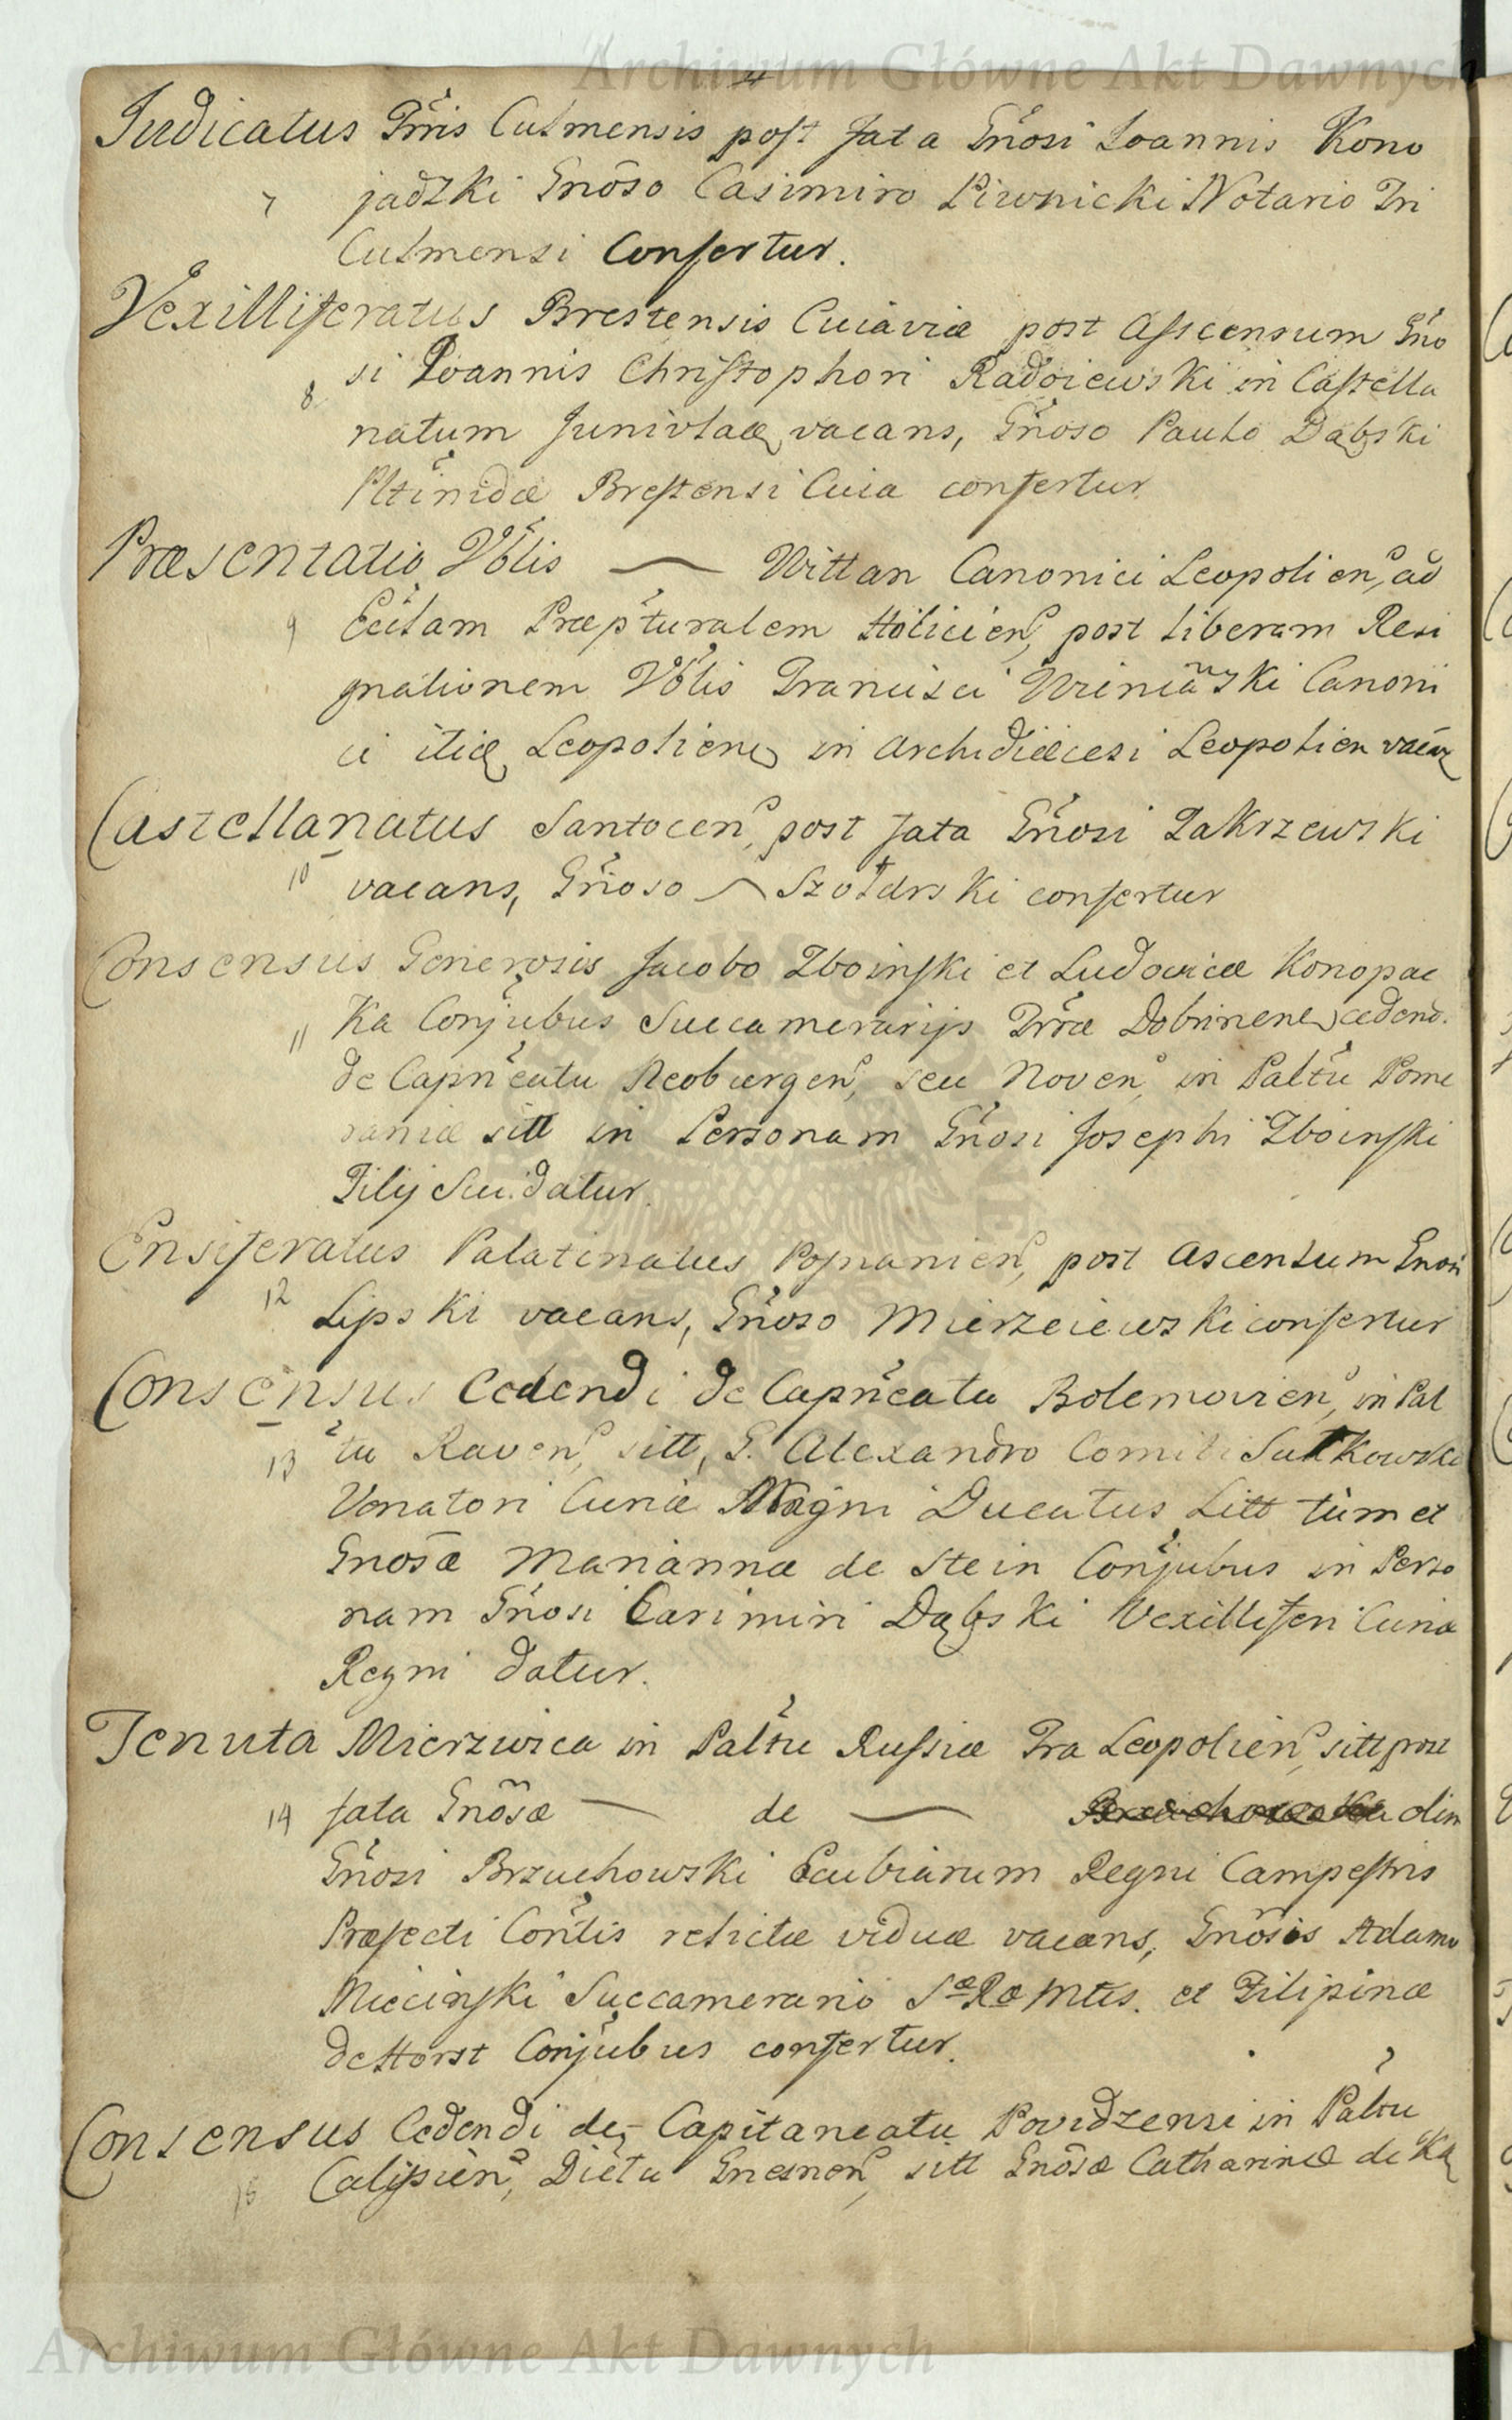 Archiwum Główne Akt Dawnych
4
Judicatus Trris Culmensis post fata Gnosi Joannis Kono
7 jadzki Gnoso Casimiro Piwnicki Notario Tri
Culmensi Confertur.
Vexilliferatus Brestensis Cuiaviæ post Asscensum Gno
8 si Joannis Christophori Radoiewski in Castella
natum Junivlad, vacans, Gnoso Paulo Dąbski
Brestensi Cuia confertur
Præsentatio Vblis — Wittan Canonici Leopolien, ad
9 Ecclam Præpturalem Holicien, post liberam Resi
gnationem Vblis Francisci Wieniawski Canoni
ci itid Leopolien, in Archidiæcesi Leopolien vacan
Castellanatus Santocen, post fata Gnosi Zakrzewski
10 vacans, Gnoso — Szołdrski confertur
Consensus Generosis Jacobo Zboinski et Ludovicæ Konopac
11 ka Conjubus Succamerarijs Trræ Dobrinen, cedend.
de Capneatu Neoburgen, seu Noven, in Paltu Pome
raniæ sitt in Personam Gnosi Josephi Zboinski
Filij Sui datur.
Ensiferatus Palatinatus Posnanien, post ascensum Gnosi
12 Lipski vacans, Gnoso Mierzeiewski confertur
Consensus Cedendi de Capneatu Bolemovien, in Pal
13 tu Raven, sitt, G. Alexandro Comiti Sułkowski
Venatori Curiæ Magni Ducatus Litt tùm et
Gnosæ Mariannæ de Stein Conjubus in Perso
nam Gnosi Casimiri Dąbski Vexilliferi Curiæ
Regni datur.
Tenuta Mierzwica in Paltu Russiæ Tra Leopolien, sitt post
14 fata Gnosæ — de — Brzuchowska olim
Gnosi Brzuchowski Excubiarum Regni Campestris
Præfecti Contis relictæ viduæ vacans, Gnosis Adamo
Miecinski Succamerario Sæ Ræ Mtis. et Filipinæ
de Horst Conjubus confertur.
Consensus Cedendi de Capitaneatu Povidzensi in Paltu
15 Calissien, Dictu Gnesnen, sitt Gnosæ Catharinæ de Ką
Archiwum Główne Akt Dawnych